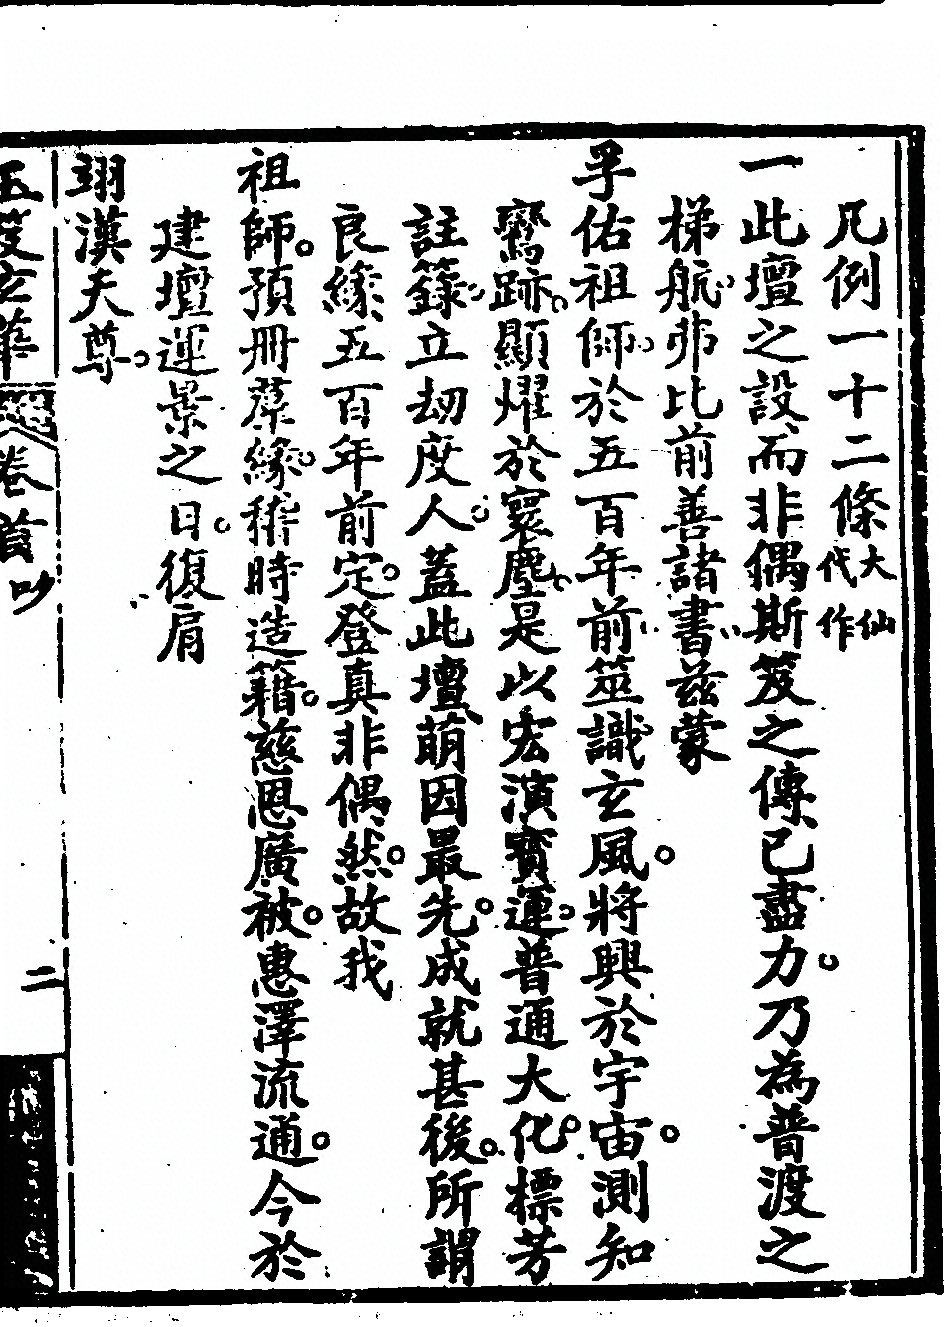 凡例一十二條大仙代作
一此壇之設而非偶斯笈之傳已盡力。乃為普渡之
梯航。弗比前善諸書茲蒙
孚佑祖師。於五百年前筮識玄風。將興於宇宙。測知
鸞跡。顯耀於寰塵。是以宏演寶運。普通大化。標芳
註籙。立劫度人。蓋此壇萌因最先。成就甚後。所謂
良緣五百年前定。登真非偶然。故我
祖師。預冊藻緣。稽時造籍。慈恩廣被。惠澤流通。今於
建壇運景之日。復肩
翊漢天尊。
玉笈玄華 卷首 二